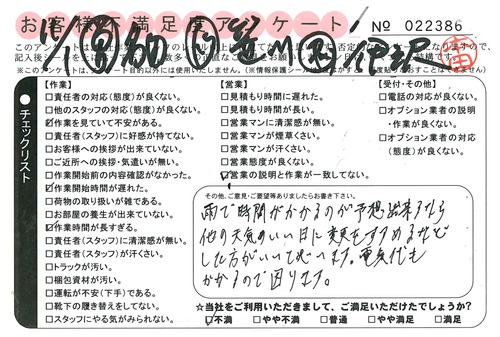 お客様不満足度アンケート
№ 022386
チェックリスト
【作業】
□責任者の対応(態度)が良くない。
□他のスタッフの対応(態度)が良くない。
☑作業を見ていて不安がある。
□責任者(スタッフ)に好感が持てない。
□お客様への挨拶が出来ていない。
□ご近所への挨拶・気遣いが無い。
□作業開始前の内容確認がなかった。
☑作業開始時間が遅れた。
□荷物の取り扱いが雑である。
□お部屋の養生が出来ていない。
☑作業時間が長すぎる。
□責任者(スタッフ)に清潔感が無い。
□責任者(スタッフ)が汗くさい。
□トラックが汚い。
□梱包資材が汚い。
□運転が不安(下手)である。
□靴下の履き替えをしていない。
□スタッフにやる気がみられない。
【営業】
□見積もり時間に遅れた。
□見積もり時間が長い。
□営業マンに清潔感が無い。
□営業マンが煙草くさい。
□営業マンが汗くさい。
□営業態度が良くない。
☑営業の説明と作業が一致してない。
【受付・その他】
□電話の対応が良くない。
□オプション業者の説明
・作業が良くない。
□オプション業者の対応
(態度)が良くない。
その他、ご意見・ご要望等ありましたらお書き下さい。
雨で時間がかかるのが予想出来るなら
他の天気のいい日に変更をすすめるなど
した方がいいと思います。電気代も
かかるので困ります。
☆当社をご利用いただきまして、ご満足いただけたでしょうか?
☑不満 □やや不満 □普通 □やや満足 □満足